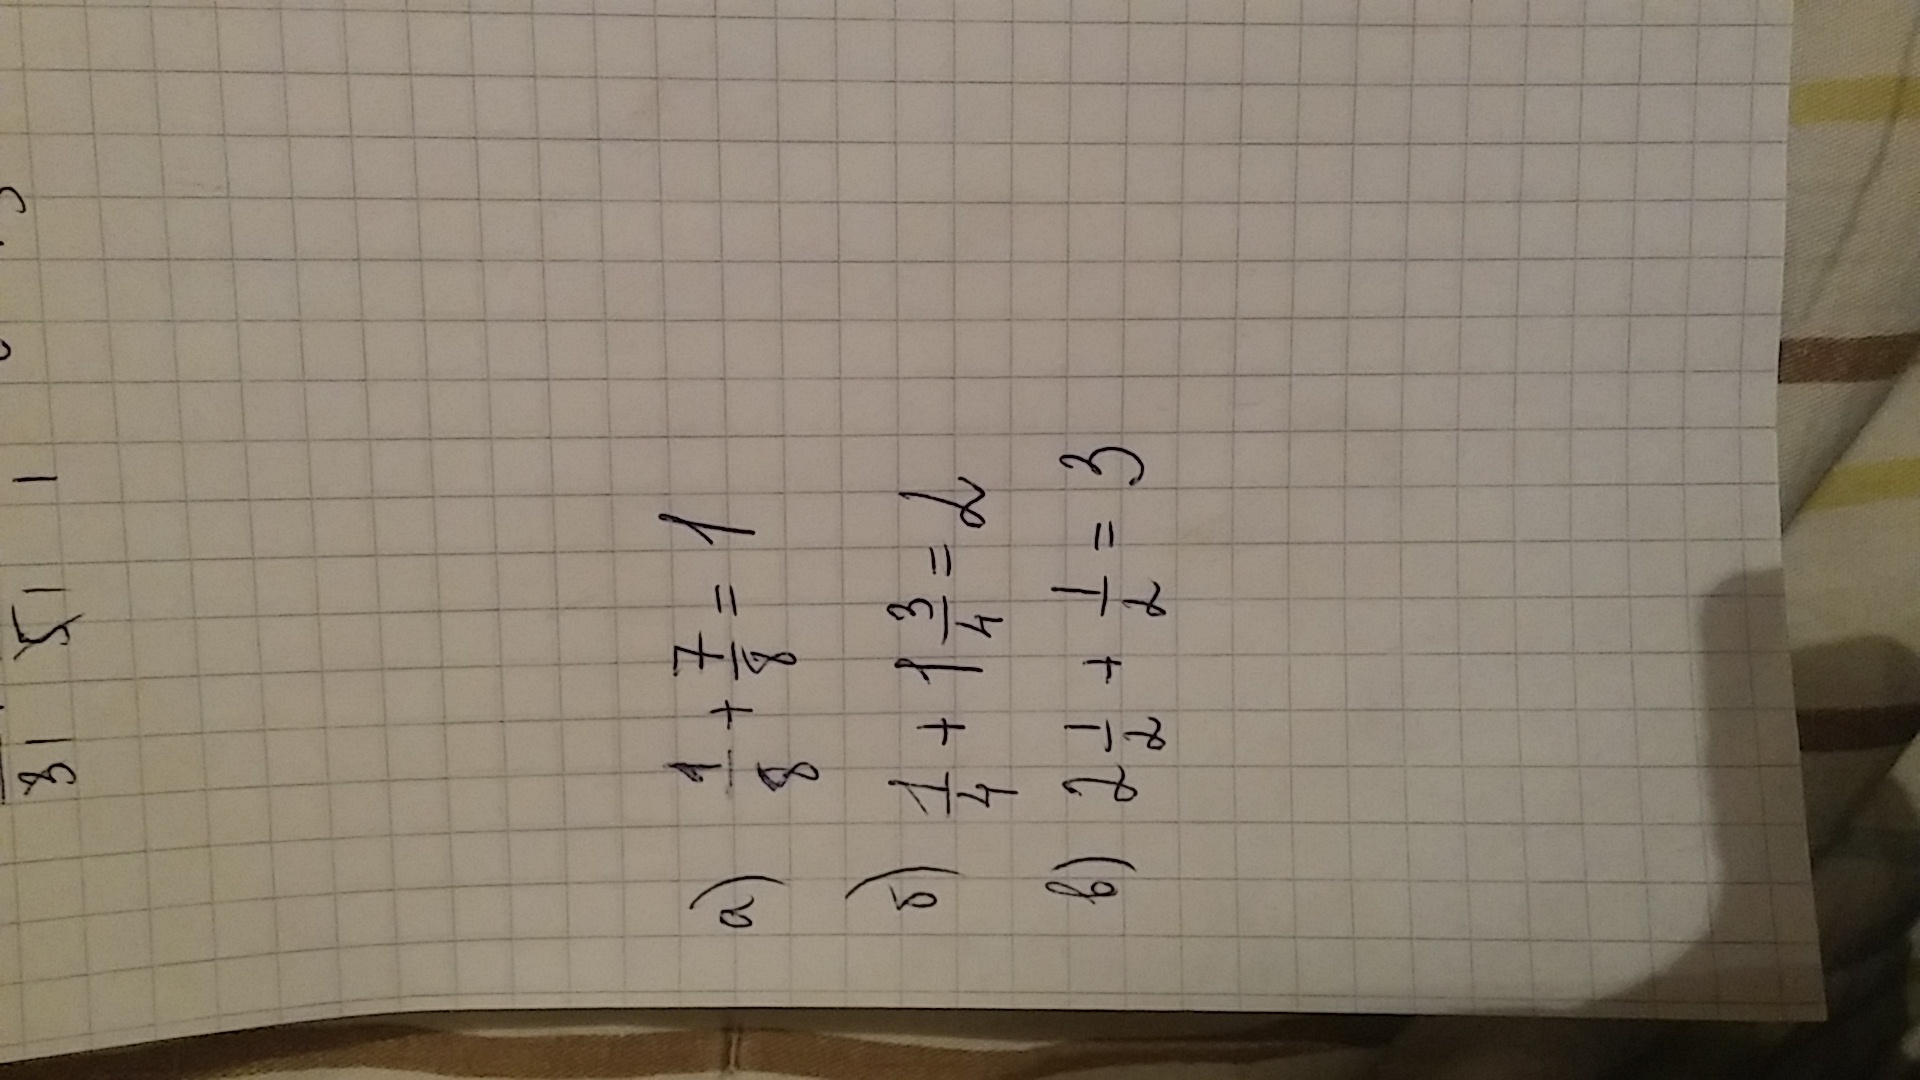 а) 1/8 + 7/8 = 1
б) 1/4 + 1 3/4 = 2
в) 2 1/2 + 1/2 = 3